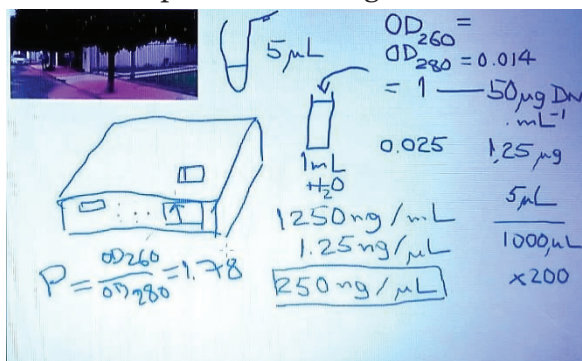 5 µL
OD260 =
OD280 = 0.014
= 1 — 50 µg DN
. mL-1
0.025 1,25 µg
1 mL
H2O
1250 ng / mL
1.25 ng / µL
250 ng / µL
5 µL
1000 µL
x200
P = OD260 / OD280 = 1.78